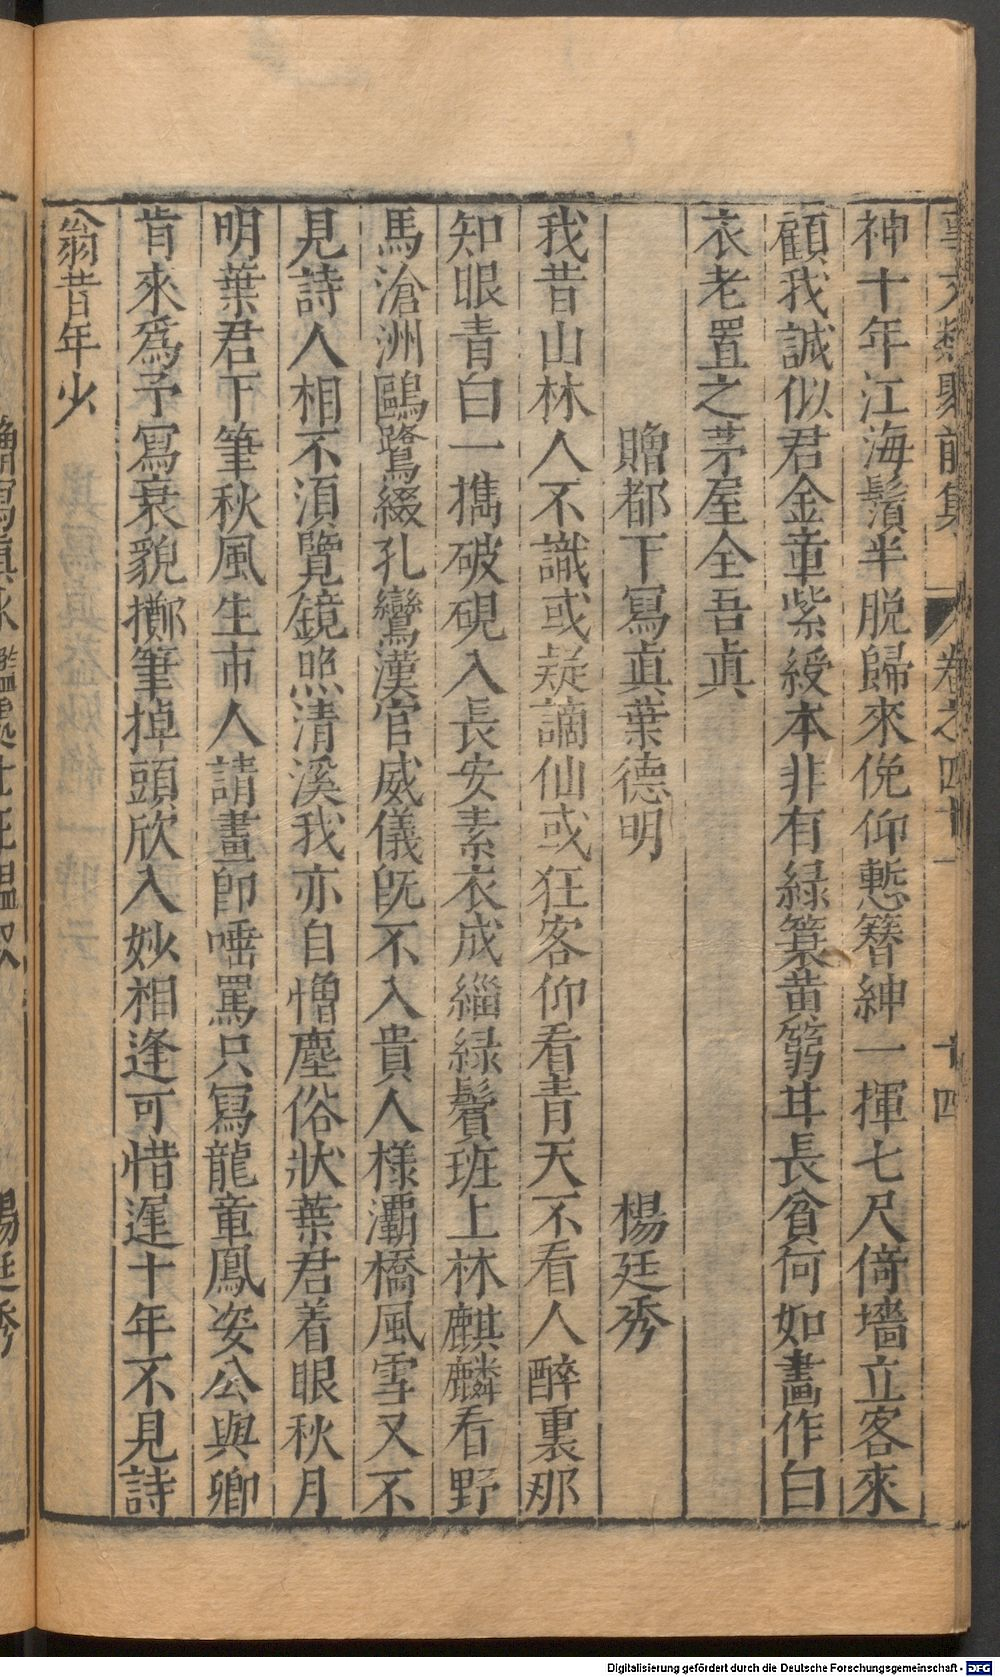 事文類聚前集 卷之四十一 十四
神十年江海鬚半脱歸來俛仰慙簪紳一揮七尺倚墻立客來
顧我誠似君金章紫綬本非有緑簑黄篛甘長貧何如畫作白
衣老置之茅屋全吾眞
贈都下寫眞葉德明 楊廷秀
我昔山林人不識或疑謫仙或狂客仰看青天不看人醉裏那
知眼青白一擕破硯入長安素衣成緇緑鬢班上林麒麟看野
馬滄洲鷗鷺綴孔鸞漢官威儀旣不入貴人樣灞橋風雪又不
見詩人相不湏覽鏡照清溪我亦自憎塵俗狀葉君着眼秋月
明葉君下筆秋風生市人請畫卽唾罵只寫龍章鳳姿公與卿
肯來爲予寫衰貌擲筆掉頭欣入妙相逢可惜遲十年不見詩
翁昔年少
楊廷秀
Digitalisierung gefördert durch die Deutsche Forschungsgemeinschaft - DFG